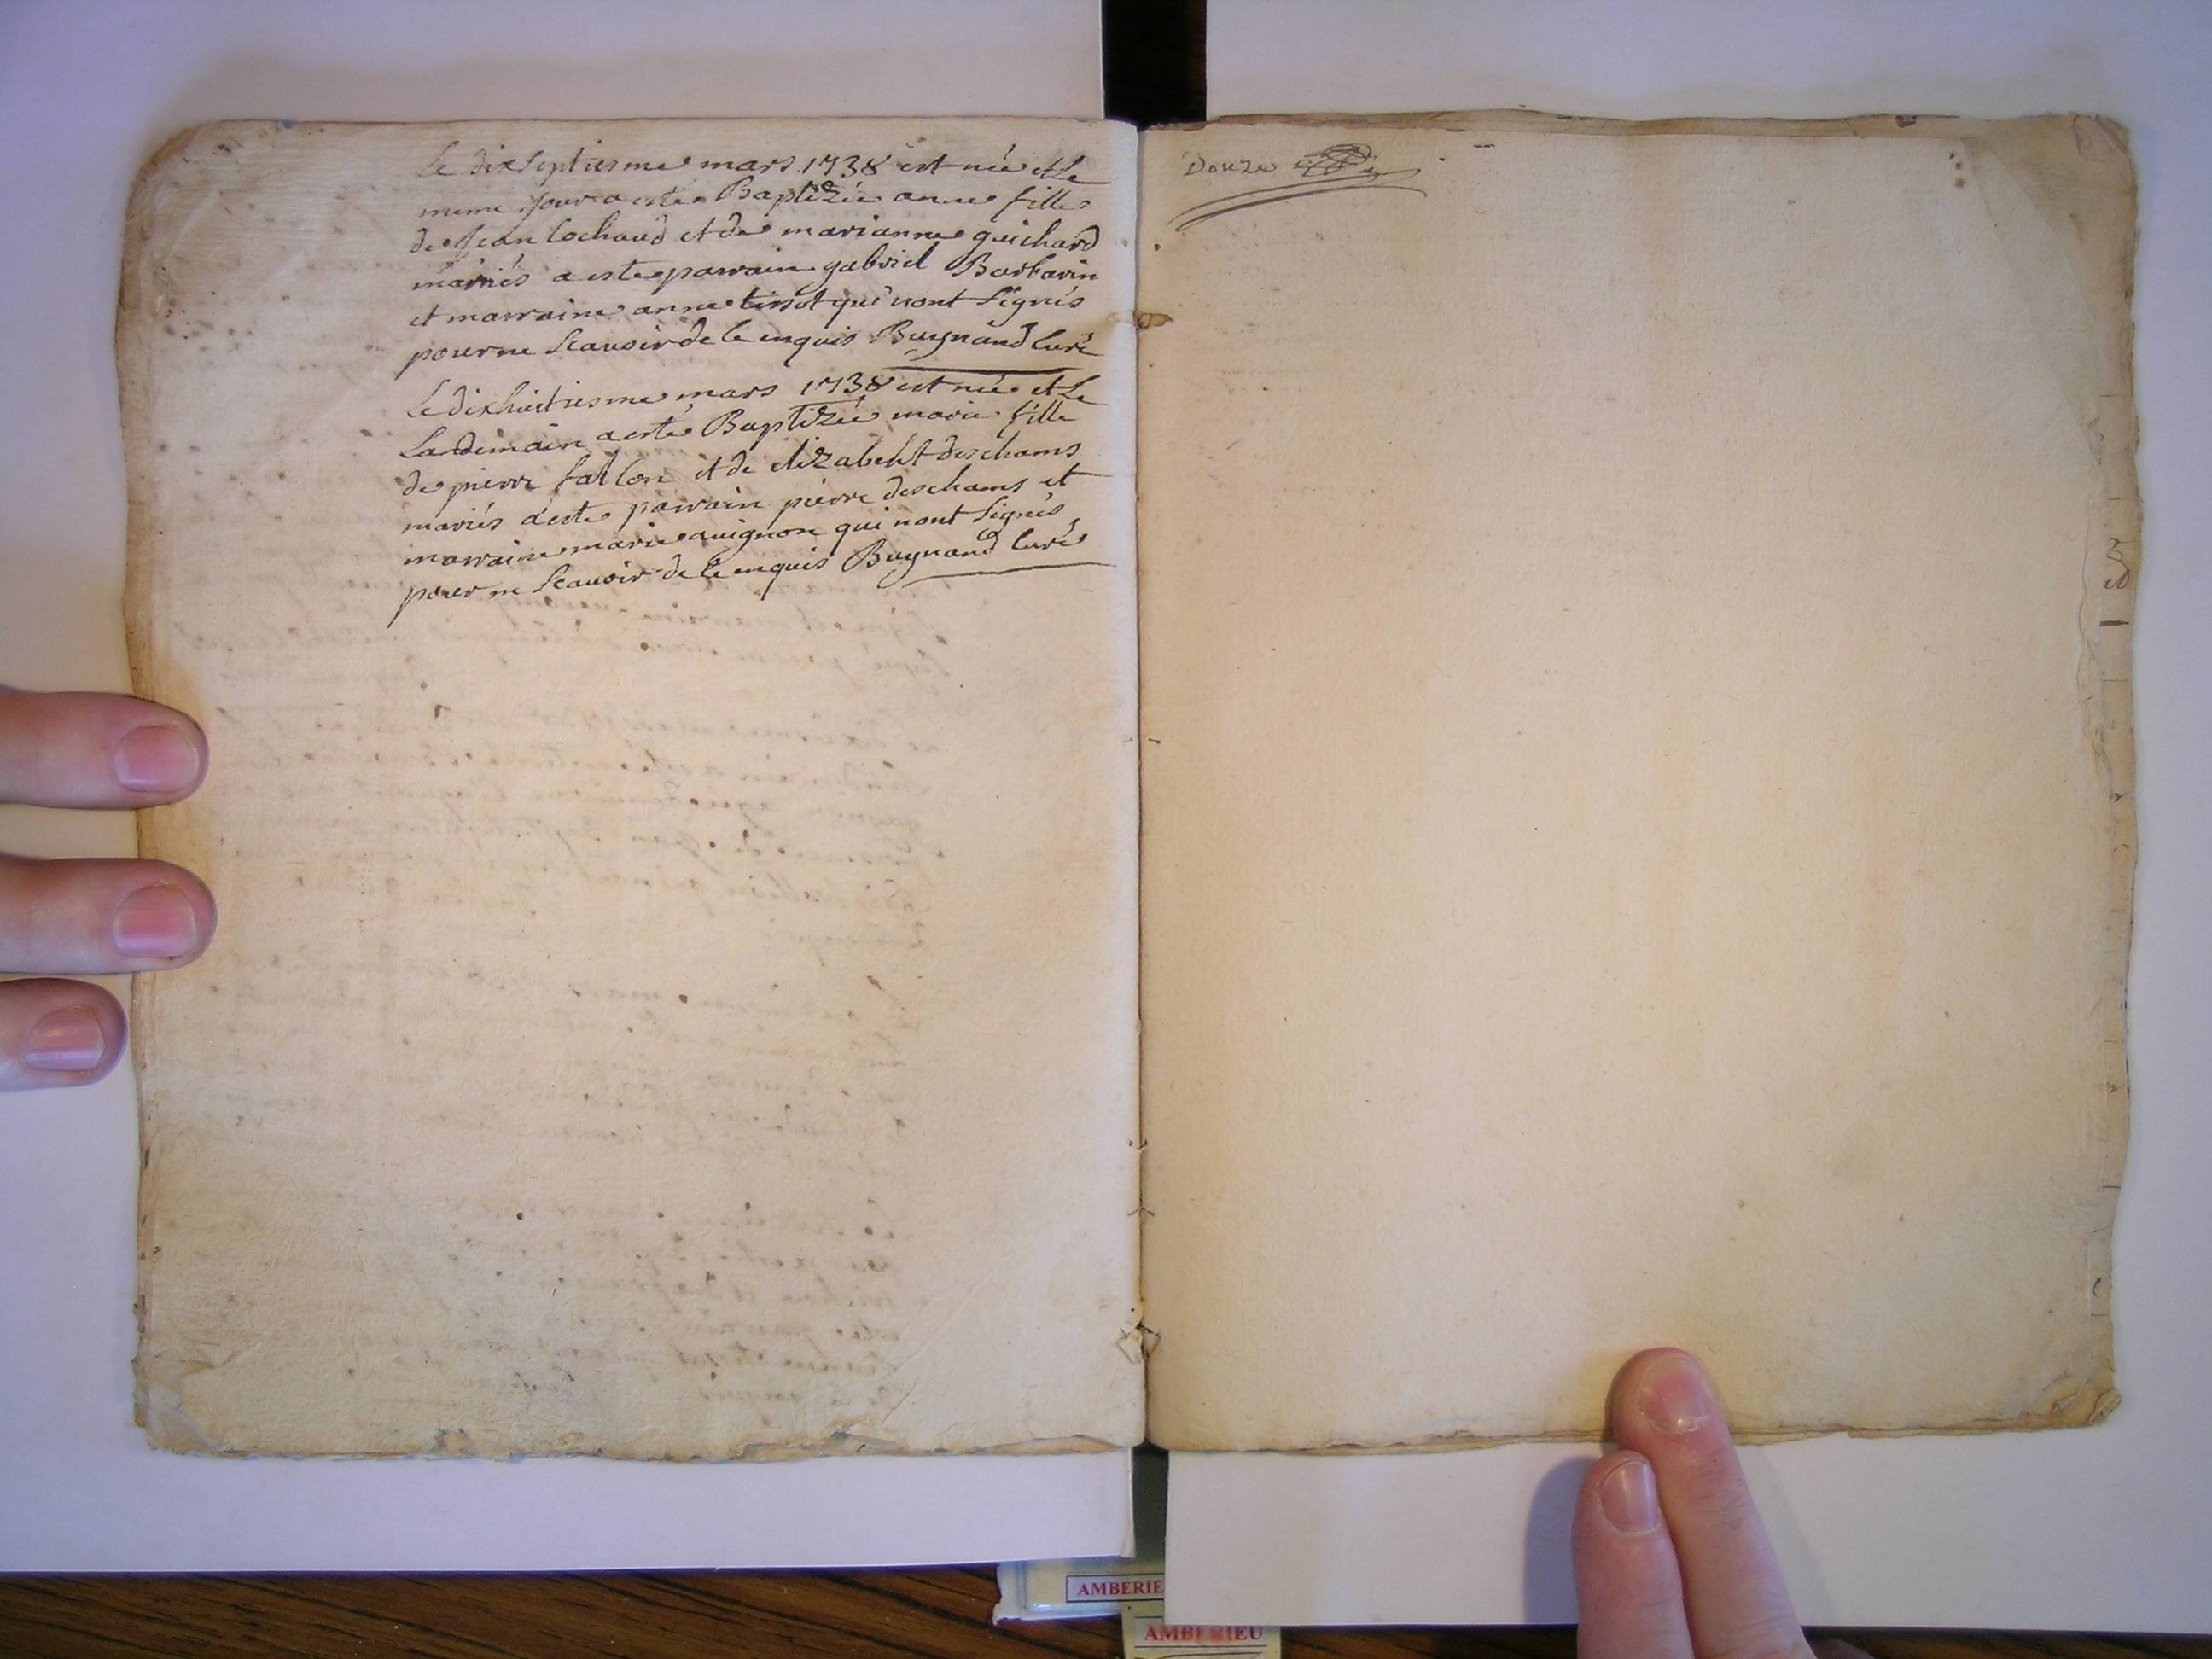 Le dixseptiesme mars 1738 est née et Le
meme jour a esté Baptizée anne fille
de Jean Cochaud et de marianne guichard
mariés a esté parrain gabriel Barbarin
et marraine anne tissot qui nont Signés
pour ne Scauoir de ce enquis Buynand Curé
Le dixhuictiesme mars 1738 est née et Le
Landemain a esté Baptizée marie fille
de pierre fallon et de elizabeht deschams
mariés a esté parrain pierre deschams et
marraine marie auignon qui nont Signés
pour ne Scauoir de ce enquis Buynand Curé
Douze
AMBERIE
AMBERIEU